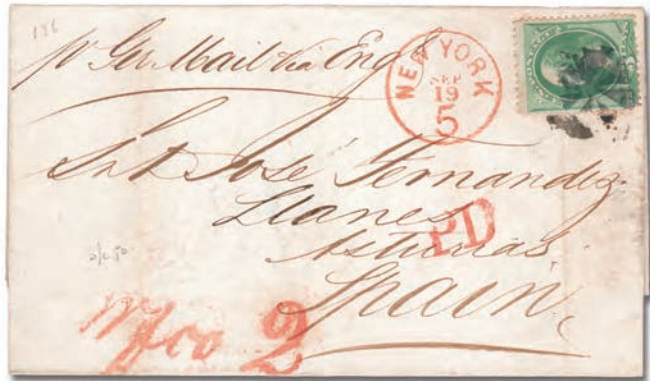 186
pr Ger Mail via Engd
NEW YORK
SEP
19
5
Snr Dn José Fernandez
Llanes
PD
Asturias
Spain
Wfco 2